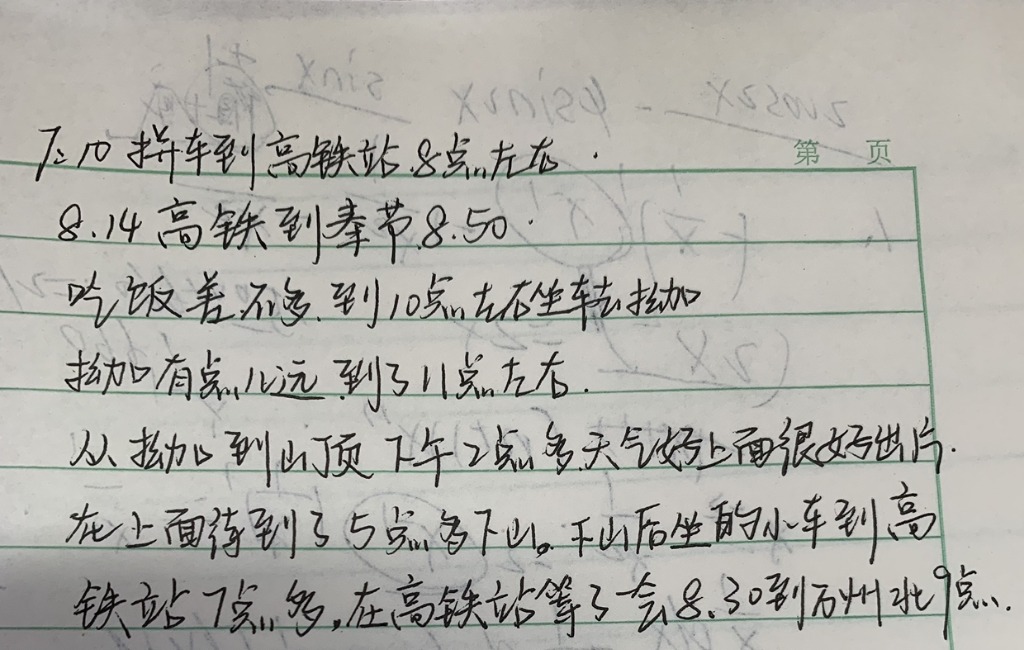 第 页
7:10 拼车到高铁站 8点左右.
8.14 高铁到奉节 8.50.
吃饭差不多到10点左右坐车去拗加
拗加有点儿远 到了11点左右.
从拗加到山顶 下午2点多天气好上面很好出片.
在上面待到了5点多下山。下山后坐的小车到高
铁站7点多,在高铁站等了一会8.30到万州北9点.